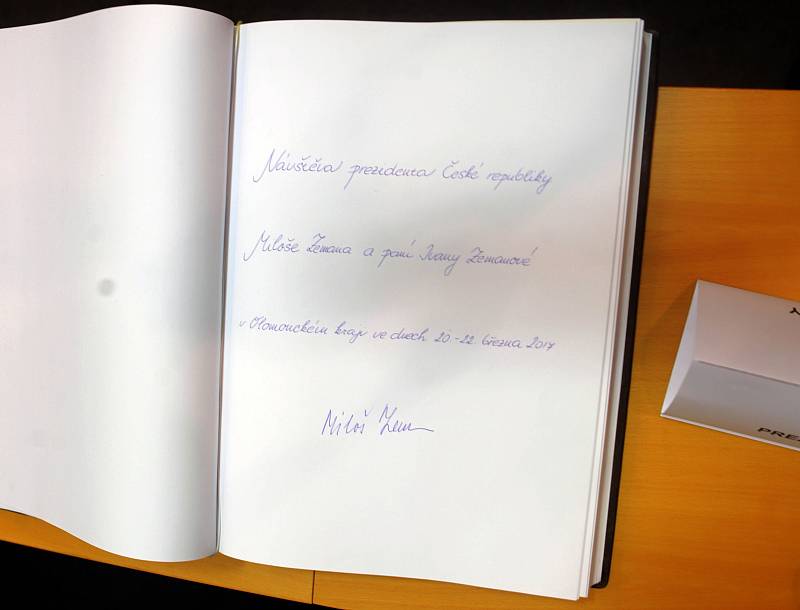 Návštěva prezidenta České republiky
Miloše Zemana a paní Ivany Zemanové
v Olomouckém kraji ve dnech 20.-22. března 2017
Miloš Zeman